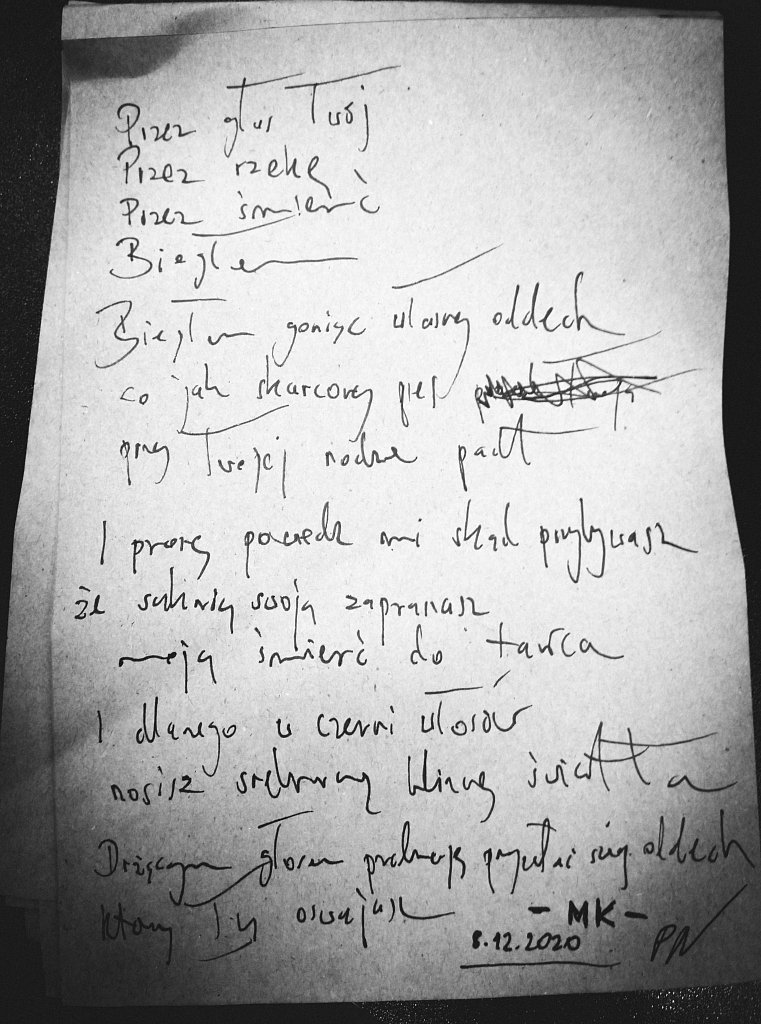 Przez głos Twój
Przez rzekę
Przez śmierć
Biegłem
Biegłem goniąc własny oddech
co jak skarcony pies
przy Twojej nodze padł
I proszę powiedz mi skąd przybywasz
że suknią swoją zapraszasz
moją śmierć do tańca
I dlaczego w czerni włosów
nosisz srebrny bliznę światła
Drżącym głosem próbuję przytulać swój oddech
który Ty oswajasz
- MK -
8.12.2020
PN